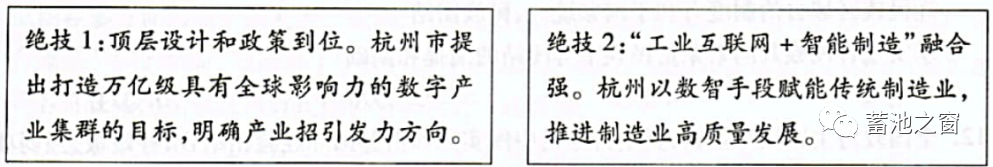 绝技1:顶层设计和政策到位。杭州市提
出打造万亿级具有全球影响力的数字产
业集群的目标,明确产业招引发力方向。
绝技2:“工业互联网+智能制造”融合
强。杭州以数智手段赋能传统制造业,
推进制造业高质量发展。
蓄池之窗